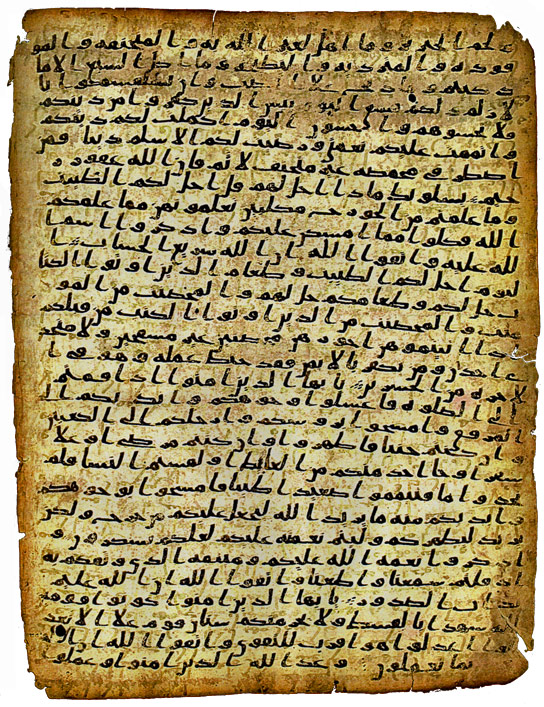 و لحم الخنزير و ما اهل لغير الله به و المنخنقة و المو
قوذة و المتردية و النطيحة و ما اكل السبع الا ما
ذكيتم و ما ذبح على النصب و ان تستقسموا با
لازلم ذلكم فسق اليوم يئس الذين كفروا من دينكم
فلا تخشوهم و اخشون اليوم اكملت لكم دينكم
و اتممت عليكم نعمتي و رضيت لكم الاسلم دينا فمن
اضطر في مخمصة غير متجنف لاثم فان الله غفور ر
حيم يسلونك ماذا احل لهم قل احل لكم الطيبت
و ما علمتم من الجورح مكلبين تعلمونهن مما علمكم
الله فكلوا مما امسكن عليكم و اذكروا اسم ا
لله عليه و اتقوا الله ان الله سريع الحساب ا
ليوم احل لكم الطيبت و طعام الذين اوتوا الكت
ب حل لكم و طعامكم حل لهم و المحصنت من المو
منت و المحصنت من الذين اوتوا الكتب من قبلكم
اذا اتيتموهن اجورهن محصنين غير مسفحين و لا متخذ
ي اخدان و من يكفر بالايمن فقد حبط عمله و هو في ا
لاخرة من الخسرين يايها الذين امنوا اذا قمتم
الى الصلوة فاغسلوا وجوهكم و ايديكم الى
المرفق و امسحوا بروسكم و ارجلكم الى الكعبين
و ان كنتم جنبا فاطهروا و ان كنتم مرضى او على
سفر او جا احد منكم من الغائط او لمستم النسا فلم
تجدوا ما فتيمموا صعيدا طيبا فامسحوا بوجوهكم
و ايديكم منه ما يريد الله ليجعل عليكم من حرج و لكن
يريد ليطهركم و ليتم نعمته عليكم لعلكم تشكرون و
اذكروا نعمة الله عليكم و ميثقه الذي وثقكم به
اذ قلتم سمعنا و اطعنا و اتقوا الله ان الله عليم
بذات الصدور يايها الذين امنوا كونوا قومين
لله شهدا بالقسط و لا يجرمنكم شنان قوم على الا تعد
لوا اعدلوا هو اقرب للتقوى و اتقوا الله ان الله
بما تعملون وعد الله الذين امنوا و عملوا